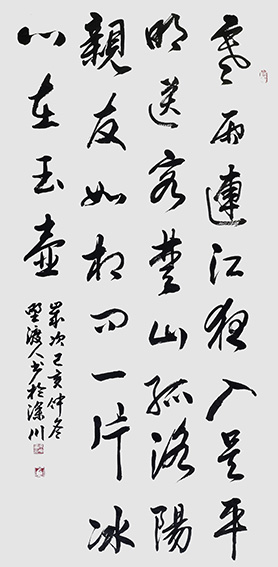 寒雨連江夜入吳平
明送客楚山孤洛陽
親友如相問一片冰
心在玉壺
歲次己亥仲冬
渡人书於川